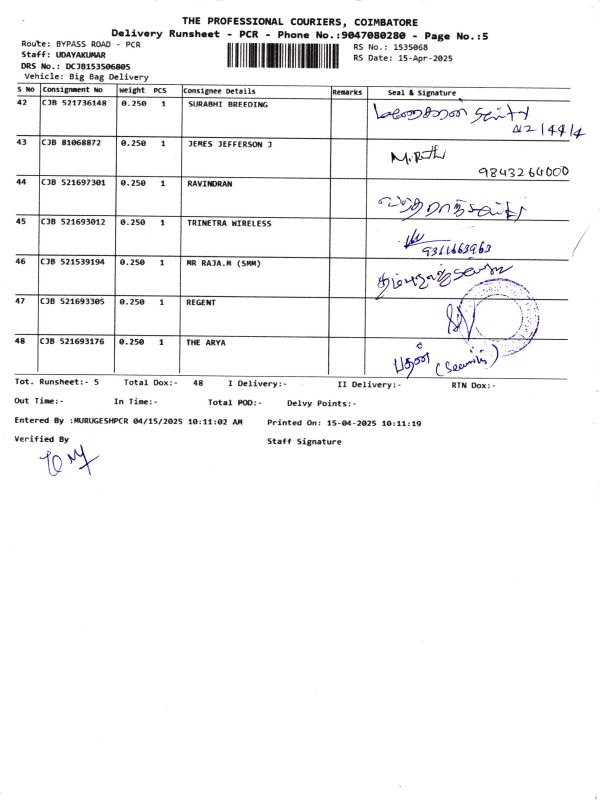 THE PROFESSIONAL COURIERS, COIMBATORE
Delivery Runsheet - PCR - Phone No.:9047080280 - Page No.:5
Route: BYPASS ROAD - PCR
RS No.: 1535068
Staff: UDAYAKUMAR
RS Date: 15-Apr-2025
DRS No.: DCJB153506805
Vehicle: Big Bag Delivery
S No Consignment No Weight PCS Consignee Details Remarks Seal & Signature
42 CJB 521736148 0.250 1 SURABHI BREEDING
43 CJB 81068872 0.250 1 JEMES JEFFERSON J
9843264000
44 CJB 521697301 0.250 1 RAVINDRAN
45 CJB 521693012 0.250 1 TRINETRA WIRELESS
9361663963
46 CJB 521539194 0.250 1 MR RAJA.M (SMM)
47 CJB 521693305 0.250 1 REGENT
48 CJB 521693176 0.250 1 THE ARYA
(Security)
Tot. Runsheet:- 5 Total Dox:- 48 I Delivery:- II Delivery:- RTN Dox:-
Out Time:- In Time:- Total POD:- Delvy Points:-
Entered By :MURUGESHPCR 04/15/2025 10:11:02 AM Printed On: 15-04-2025 10:11:19
Verified By Staff Signature